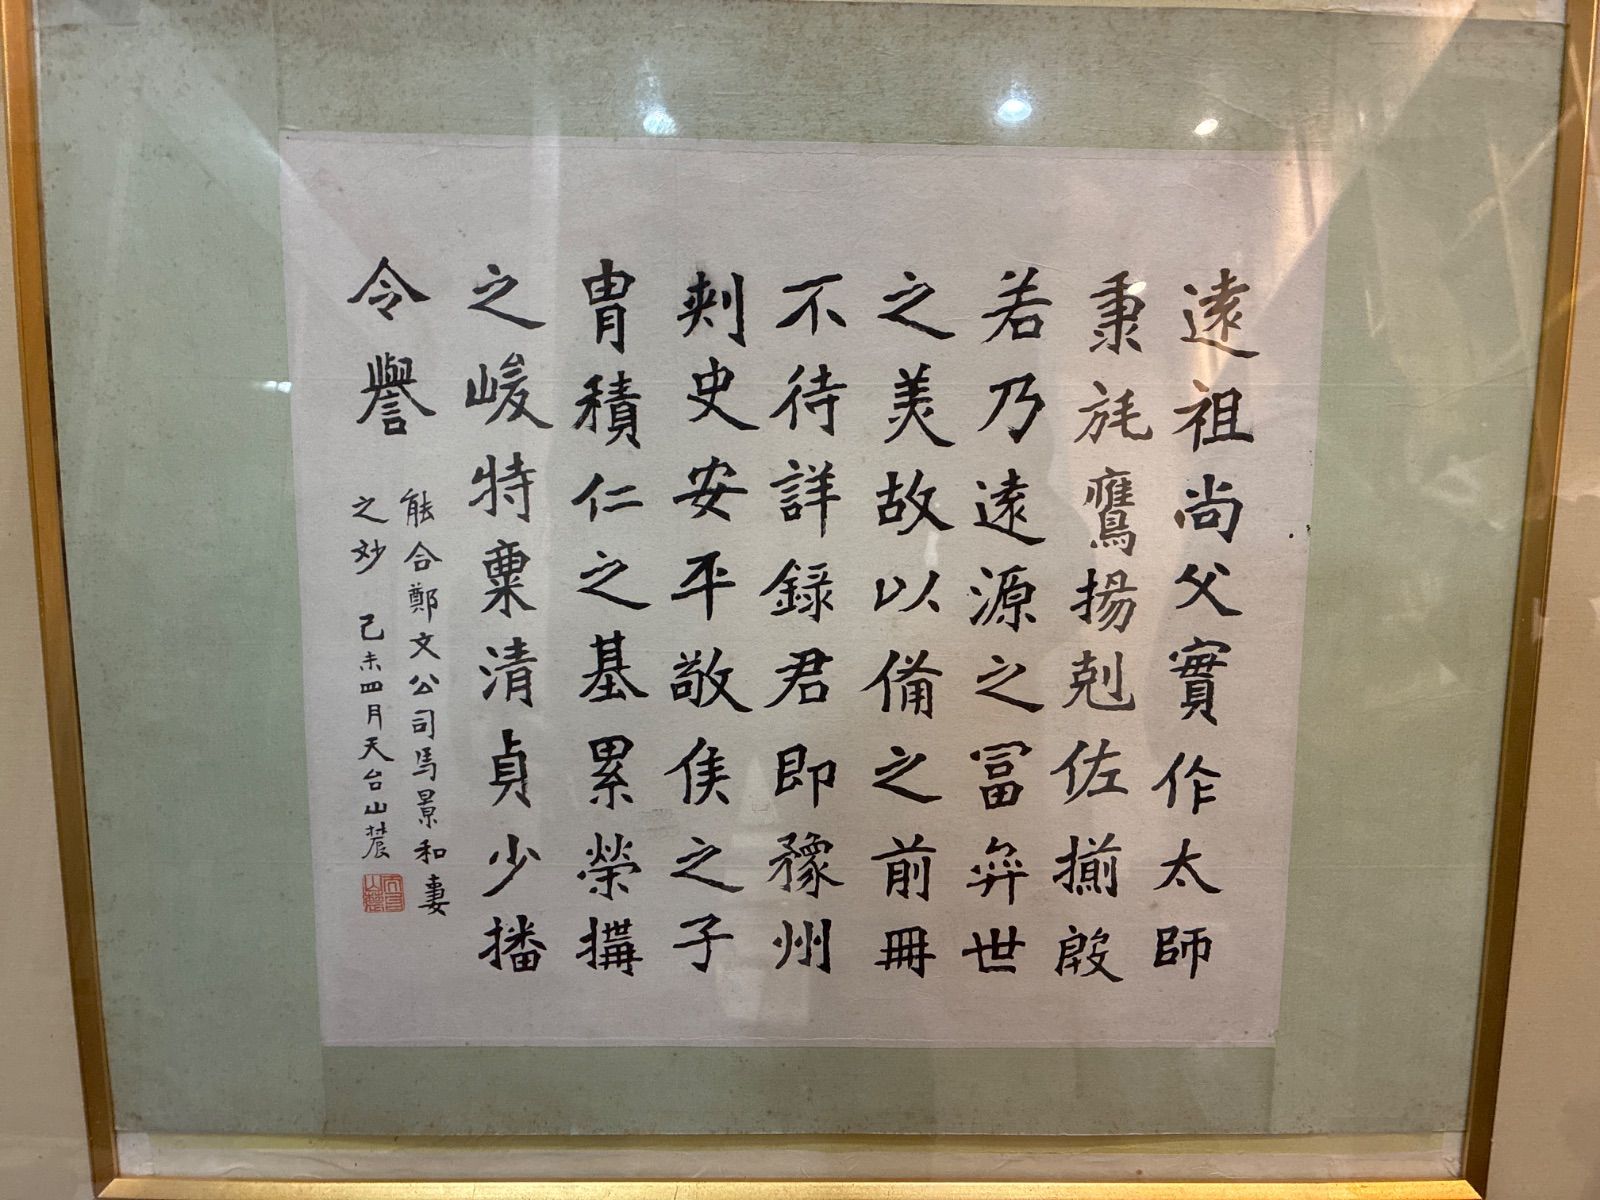 遠祖尚父實作太師
秉旄鷹揚剋佐揃殷
若乃遠源之冨弈世
之美故以俻之前冊
不待詳録君即豫州
刾史安平敬侯之子
胄積仁之基累榮搆
之峻特稟清貞少播
令譽
能合鄭文公司馬景和妻
之妙 己未四月天台山農